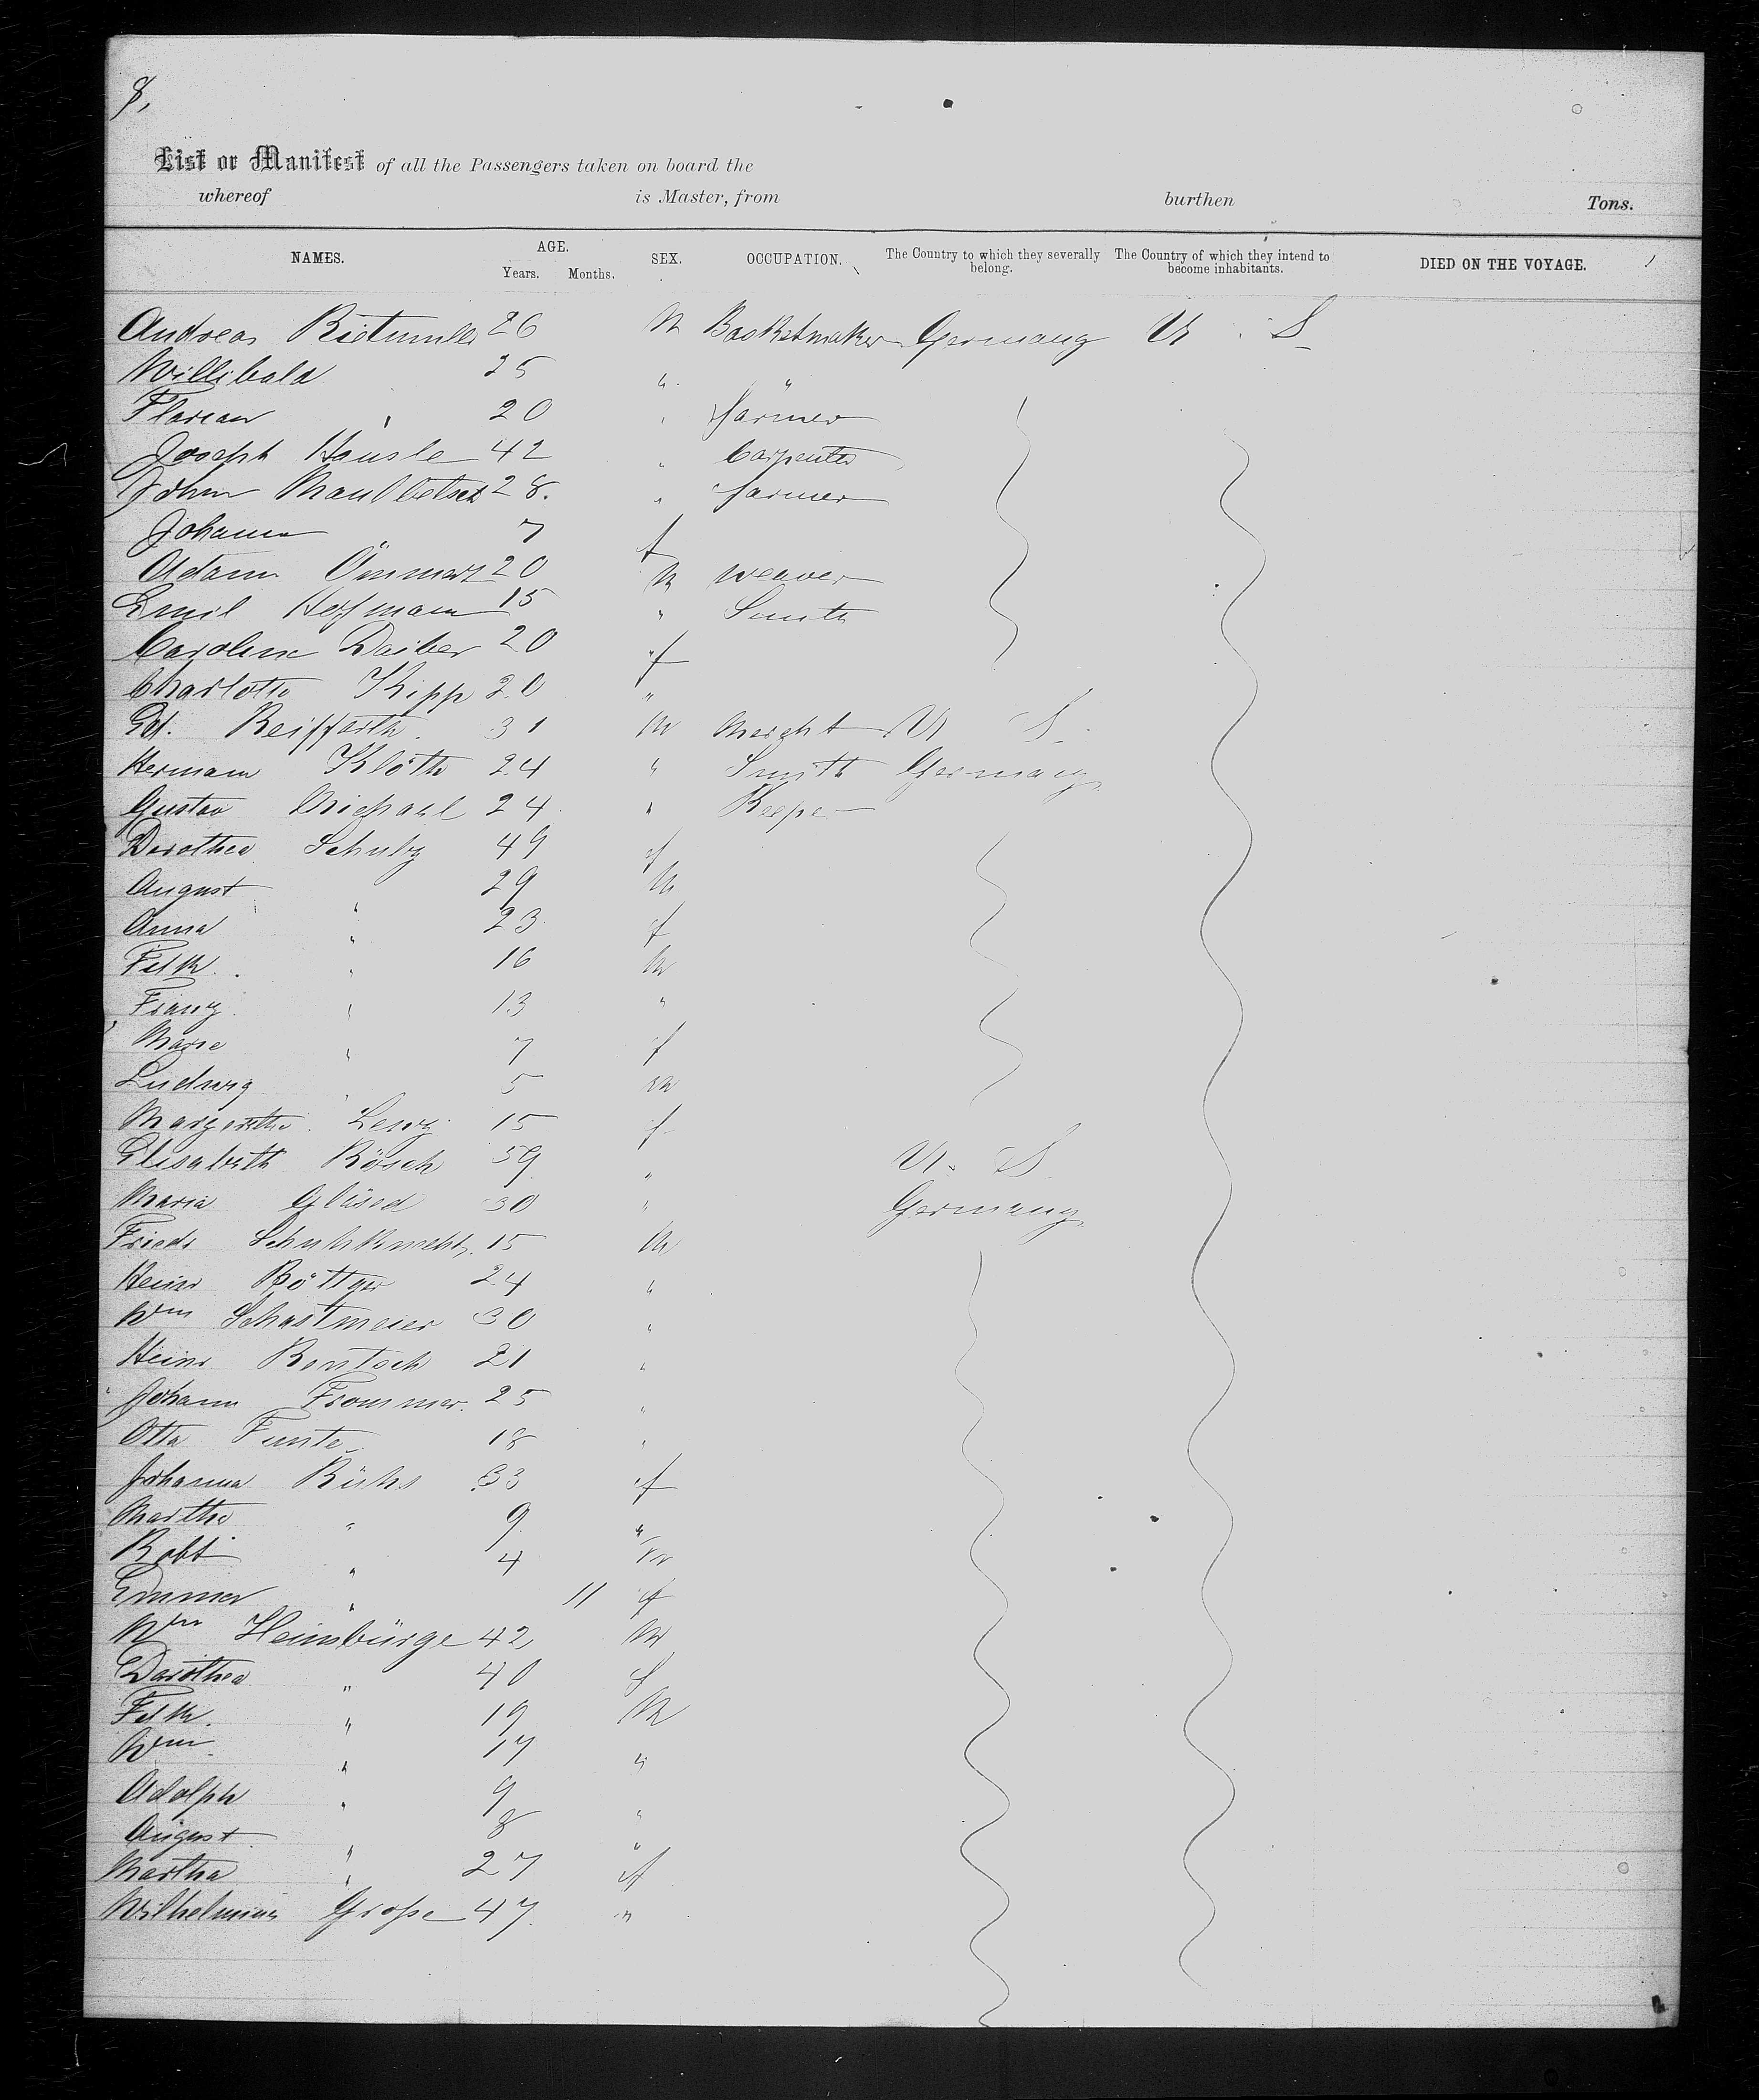 8,
List or Manifest of all the Passengers taken on board the
whereof is Master, from burthen Tons.
NAMES. AGE. Years. Months. SEX. OCCUPATION. The Country to which they severally belong. The Country of which they intend to become inhabitants. DIED ON THE VOYAGE.
Andreas 26 M Basketmaker Germany U S
Willibald 25 " "
Florian " 20 " farmer
Joseph Hausle 42 " Carpenter
John 28. " farmer
Johanna 7 f
Adam 20 M weaver
Emil Hoffmann 15 " Smith
Caroline Daiber 20 f
Charlotte Kipp 20 "
Ed. Reiffarth 31 M Mercht U S
Hermann Klöth 24 " Smith Germany
Gustav Michael 24 " Keeper
Dorothea Schulz 49 f
August " 29 M
Anna " 23 f
Fdk. " 16 M
Franz " 13 "
Marie " 7 f
Ludwig " 5 M
Margaretha 15 f
Elisabeth Rösch 59 " U. S
Maria 30 " Germany
Friedr Schuhknecht 15 M
Heinr Böttger 24 "
Wm 30 "
Heinr Bentsch 21 "
Johann Frommer. 25 "
Otto 18 "
Johanna Rühs 33 f
Martha " 9 "
Robt " 4 M
Emma " 11 f
Wm Heinsbürge 42, M
Dorothea " 40 f
Fdk. " 19 M
Wm " 17 "
Adolph " 9 "
August " 8 "
Martha " 27 f
Wilhelmine Große 47. "